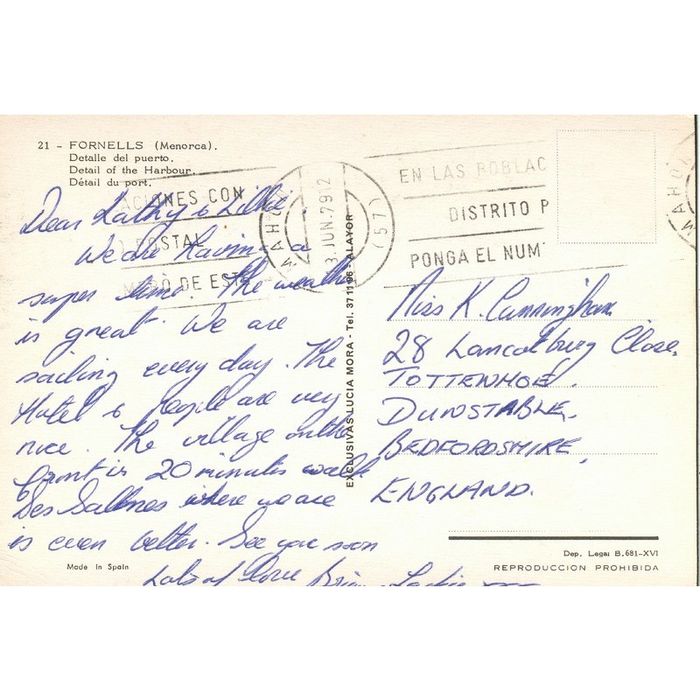 21 - FORNELLS (Menorca).
Detalle del puerto.
Detail of the Harbour.
Détail du port.
ACIONES CON
POSTAL
DE ESTA
MAHON
3 JUN. 79 12
(57)
EN LAS POBLAC
DISTRITO P
PONGA EL NUM
MAHO
Dear Kathy & Lillie,
We are having a
super time. The weather
is great. We are
sailing every day. The
Hotel & people are very
nice. The village on the
front is 20 minutes walk
Des Salines where we are
is even better. See you soon
Lots of love Brian
EXCLUSIVAS LUCIA MORA - Tel. 371196 - ALAYOR
Miss K. Cunningham
28 Close
TOTTENHOE.
DUNSTABLE.
BEDFORDSHIRE,
ENGLAND.
Made in Spain
Dep. Legal B. 681-XVI
REPRODUCCION PROHIBIDA